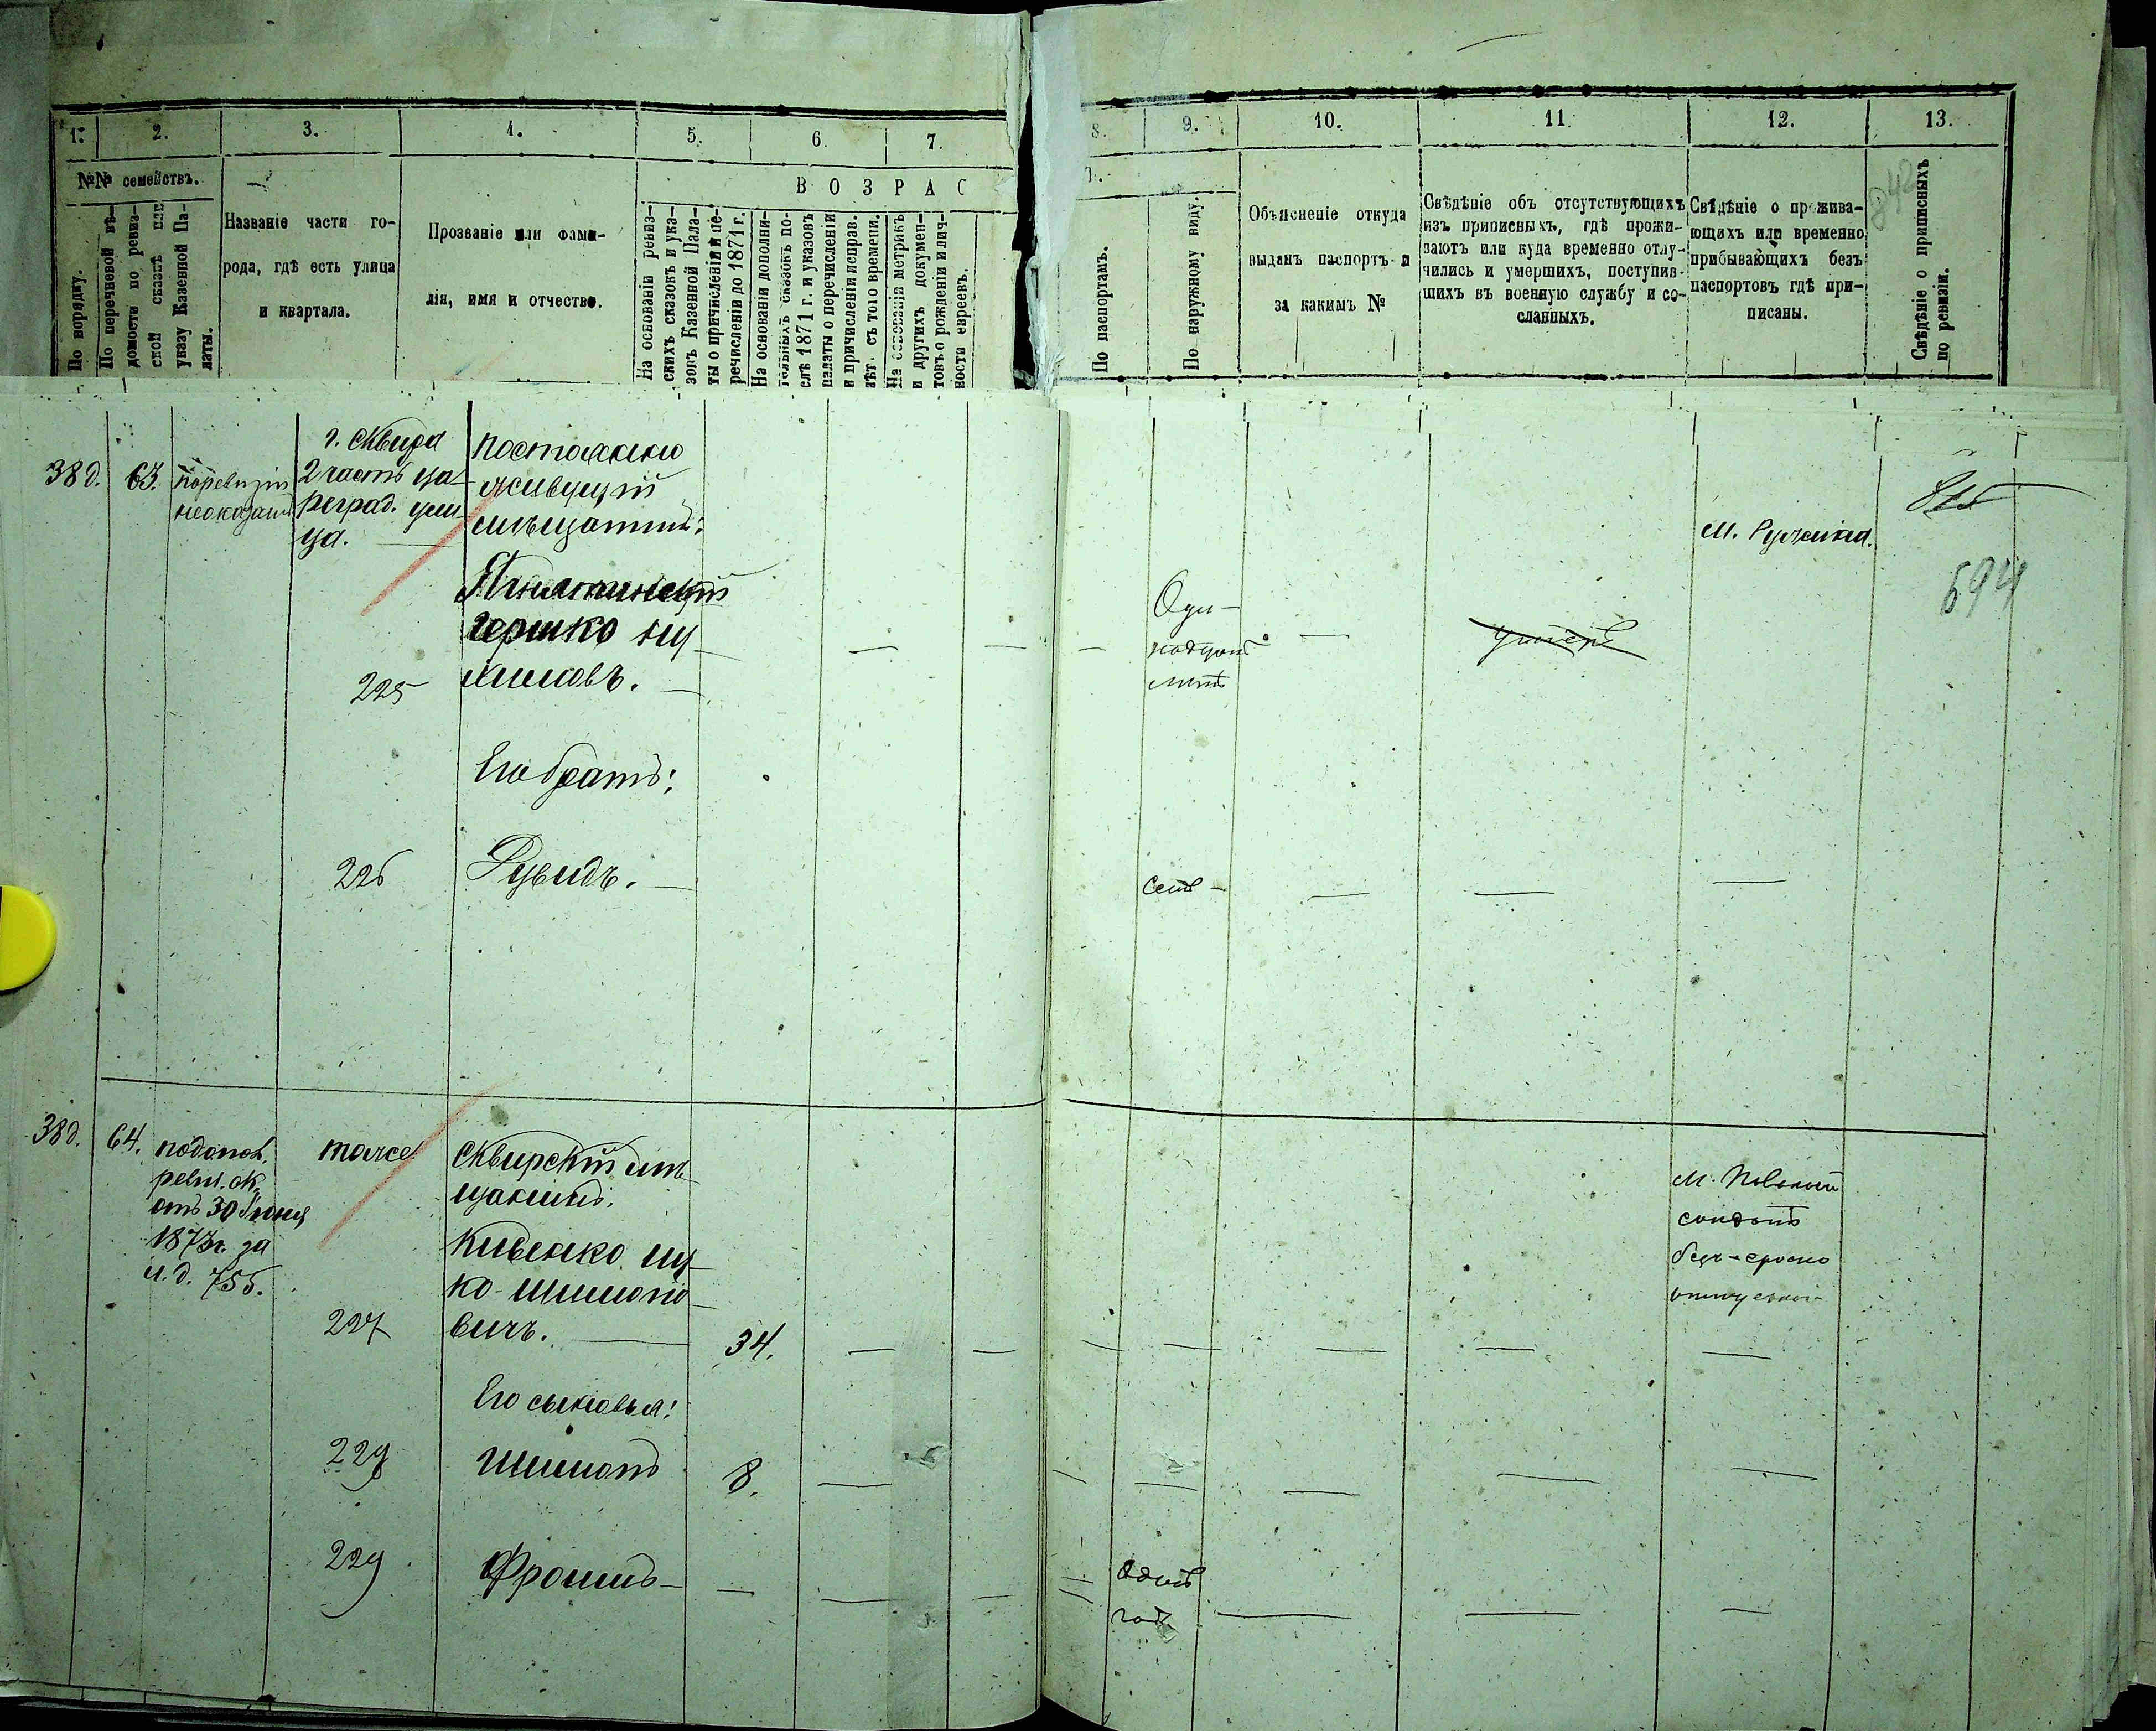 1. 2. 3. 4. 5. 6. 7.
№№ семействъ.
По порядку.
По перечневой вѣ-
домости по ревиз-
ской сказкѣ или
указу Казенной Па-
латы.
Названіе части го-
рода, гдѣ есть улица
и квартала.
Прозваніе или фами-
лія, имя и отчество.
ВОЗРАС
На основаніи ревиз-
скихъ сказокъ и ука-
зовъ Казенной Пала-
ты о причисленіи и пе-
речисленіи до 1871 г.
На основаніи дополни-
тельныхъ сказокъ по-
слѣ 1871 г. и указовъ
палаты о перечисленіи
и причисленіи исправ.
лѣт. съ того времени.
На основаніи метрикъ
и другихъ докумен-
товъ о рожденіи и лич-
ности евреевъ.
8. 9. 10. 11. 12. 13.
Т.
По паспортамъ.
По наружному виду.
Объясненіе откуда
выданъ паспортъ и
за какимъ №
Свѣдѣніе объ отсутствующихъ
изъ приписныхъ, гдѣ прожи-
ваютъ или куда временно отлу-
чились и умершихъ, поступив-
шихъ въ военную службу и со-
сланныхъ.
Свѣдѣніе о прожива-
ющихъ или временно
прибывающихъ безъ
паспортовъ гдѣ при-
писаны.
Свѣдѣніе о приписныхъ
по ревизіи.
842
38 д. 63.
по ревизіи
не оказан
г. Сквира
2 часть ца-
реград. ули-
ца.
постоянно
живущій
мѣщанинъ:
Гершко Ну-
химовъ.
225
Оди-
надцат
лѣтъ
умеръ
М. Ружина.
694
Его братъ:
226
Рувидъ.
семь
38 д. 64.
по допол.
ревиз. ск.
отъ 30 Іюня
187 г. за
тоже
Сквирскій мѣ-
щанинъ.
ко Шимоно-
вичъ.
227
34.
Его сыновья:
229
Шимонъ
8.
229
Фроимъ
Одинъ
годъ